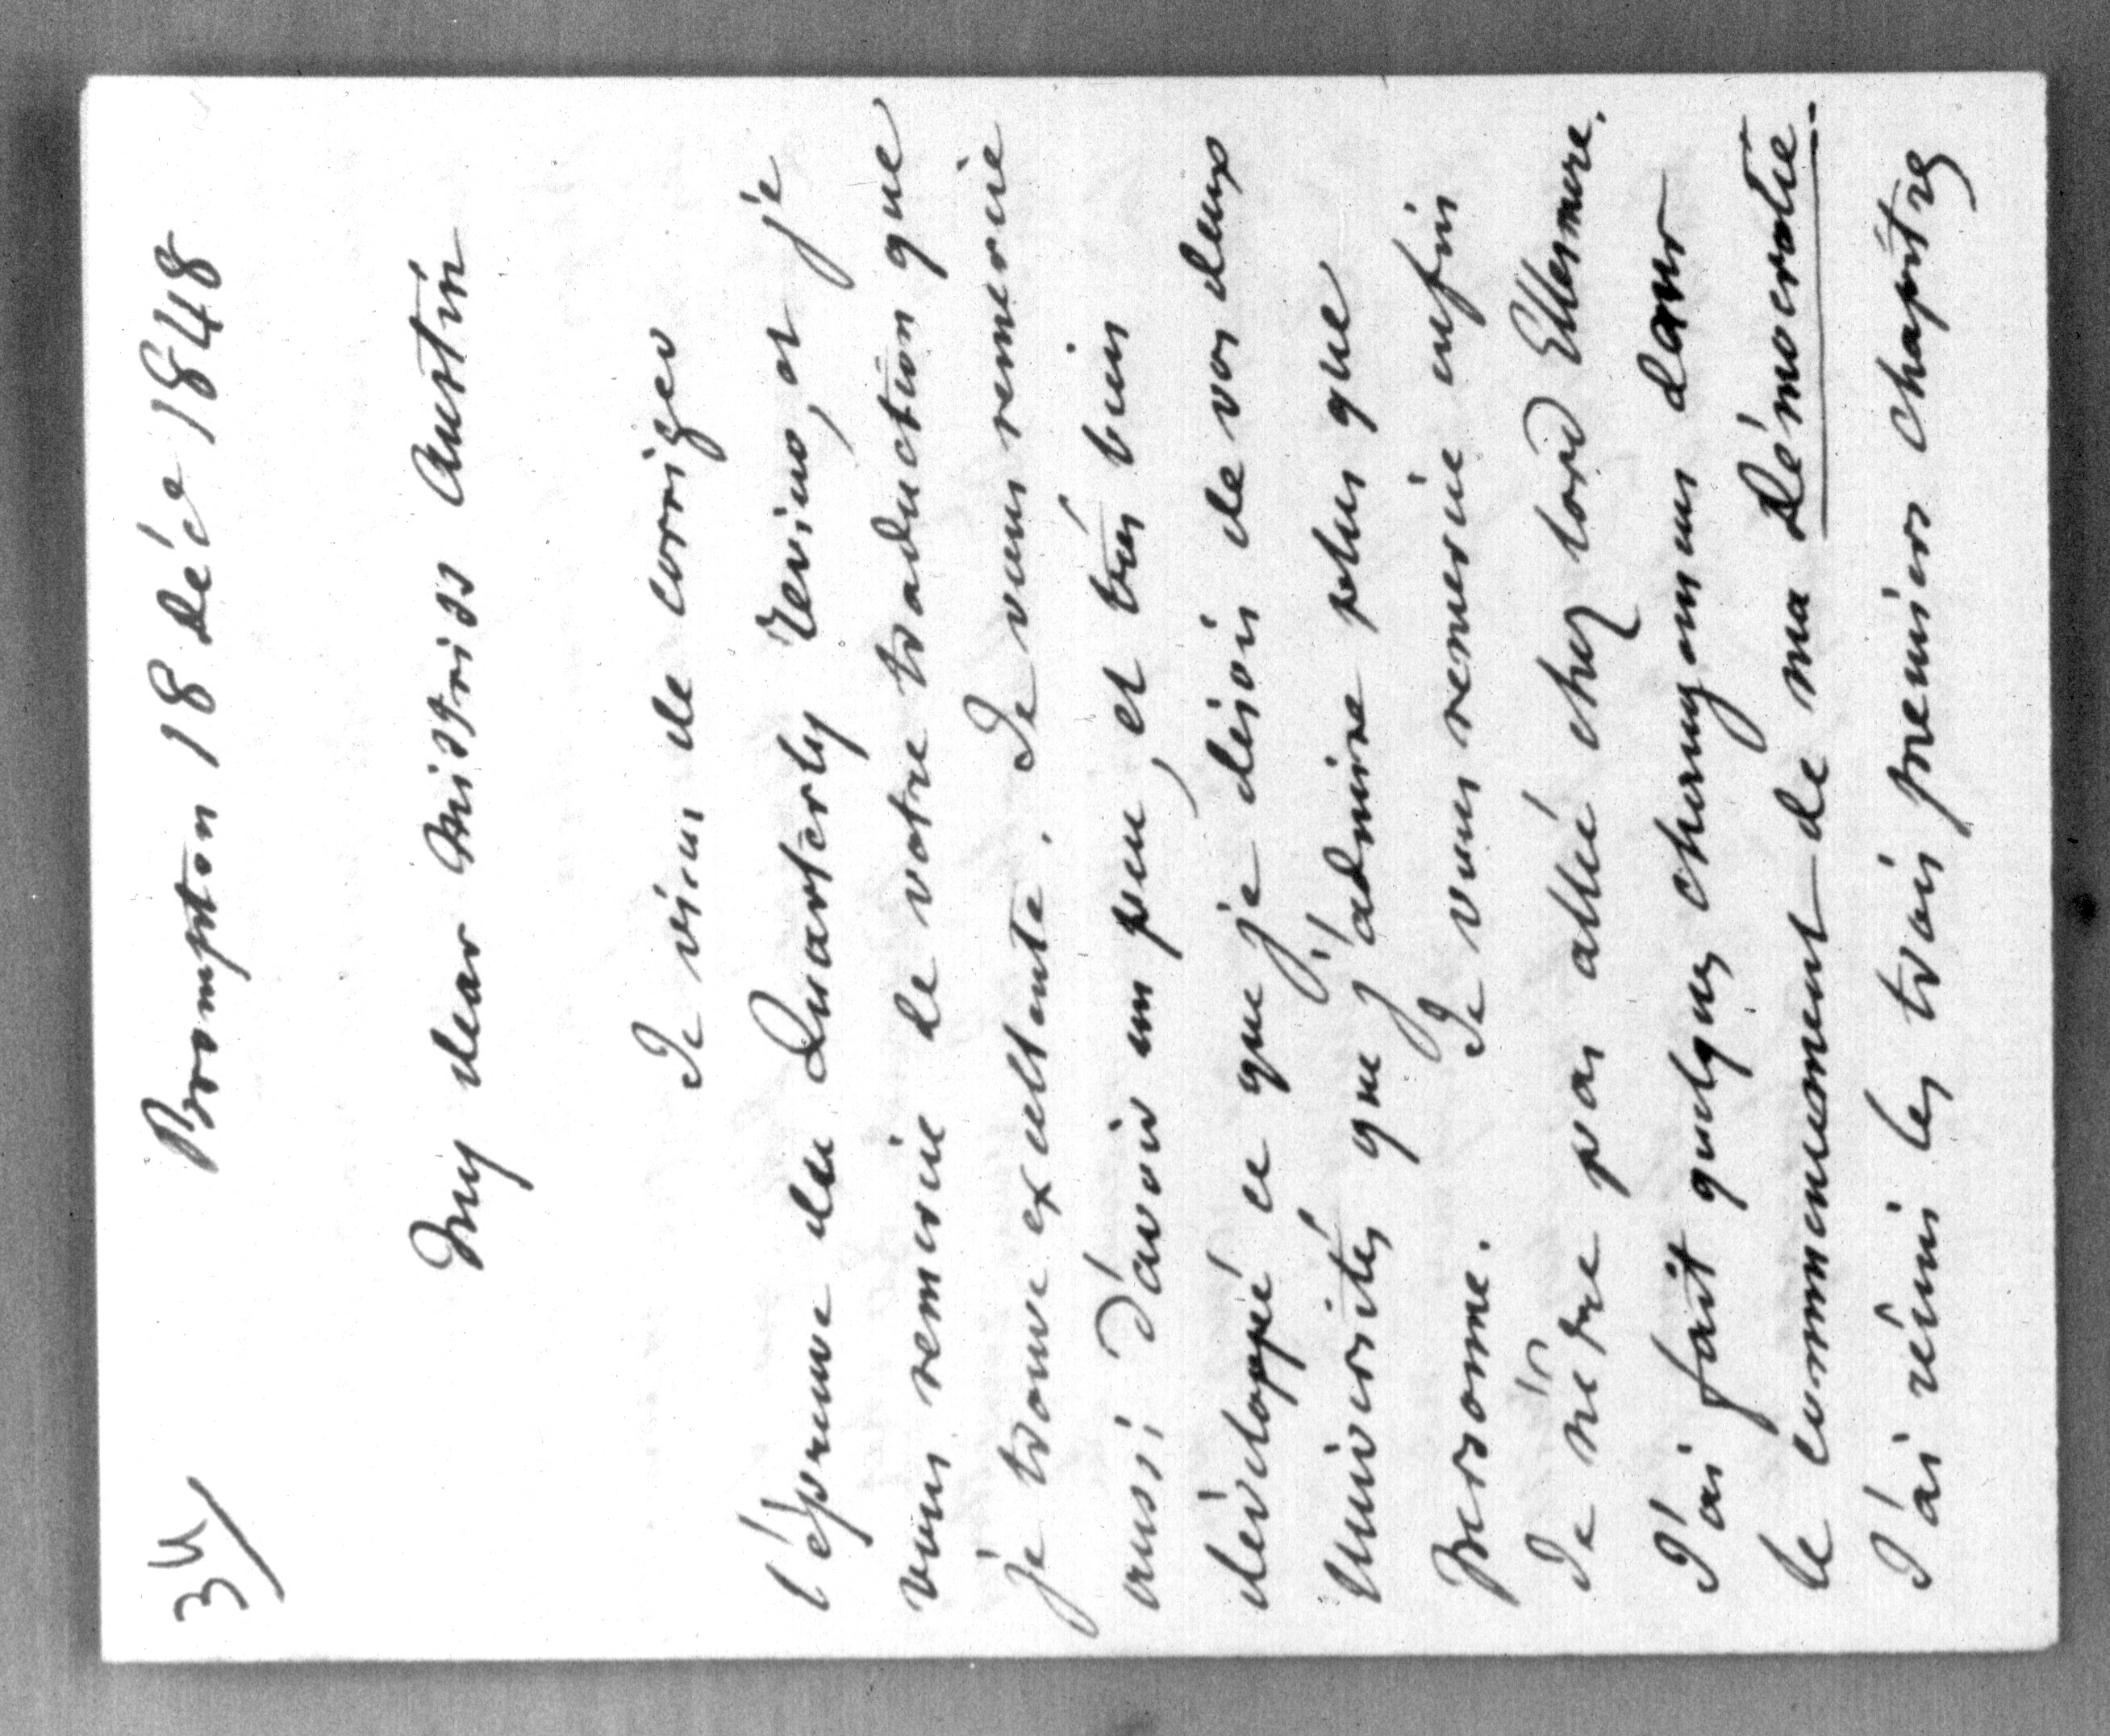 34
Brompton 18 Déc 1848
My dear Mistriss Austin
Je viens de corriger
l'épreuve du Quarterly Review, et je
vous remercie de votre traduction que
je trouve excellente. Je vous remercie
aussi d'avoir un peu, et très bien
développé ce que je disois de vos deux
Universités que j'admire plus que
Personne. Je vous remercie enfin
de n'être pas allée chez Lord Ellesmere.
J'ai fait quelques changemens dans
le commencement de ma Démocratie.
J'ai réuni les trois premiers chapitres